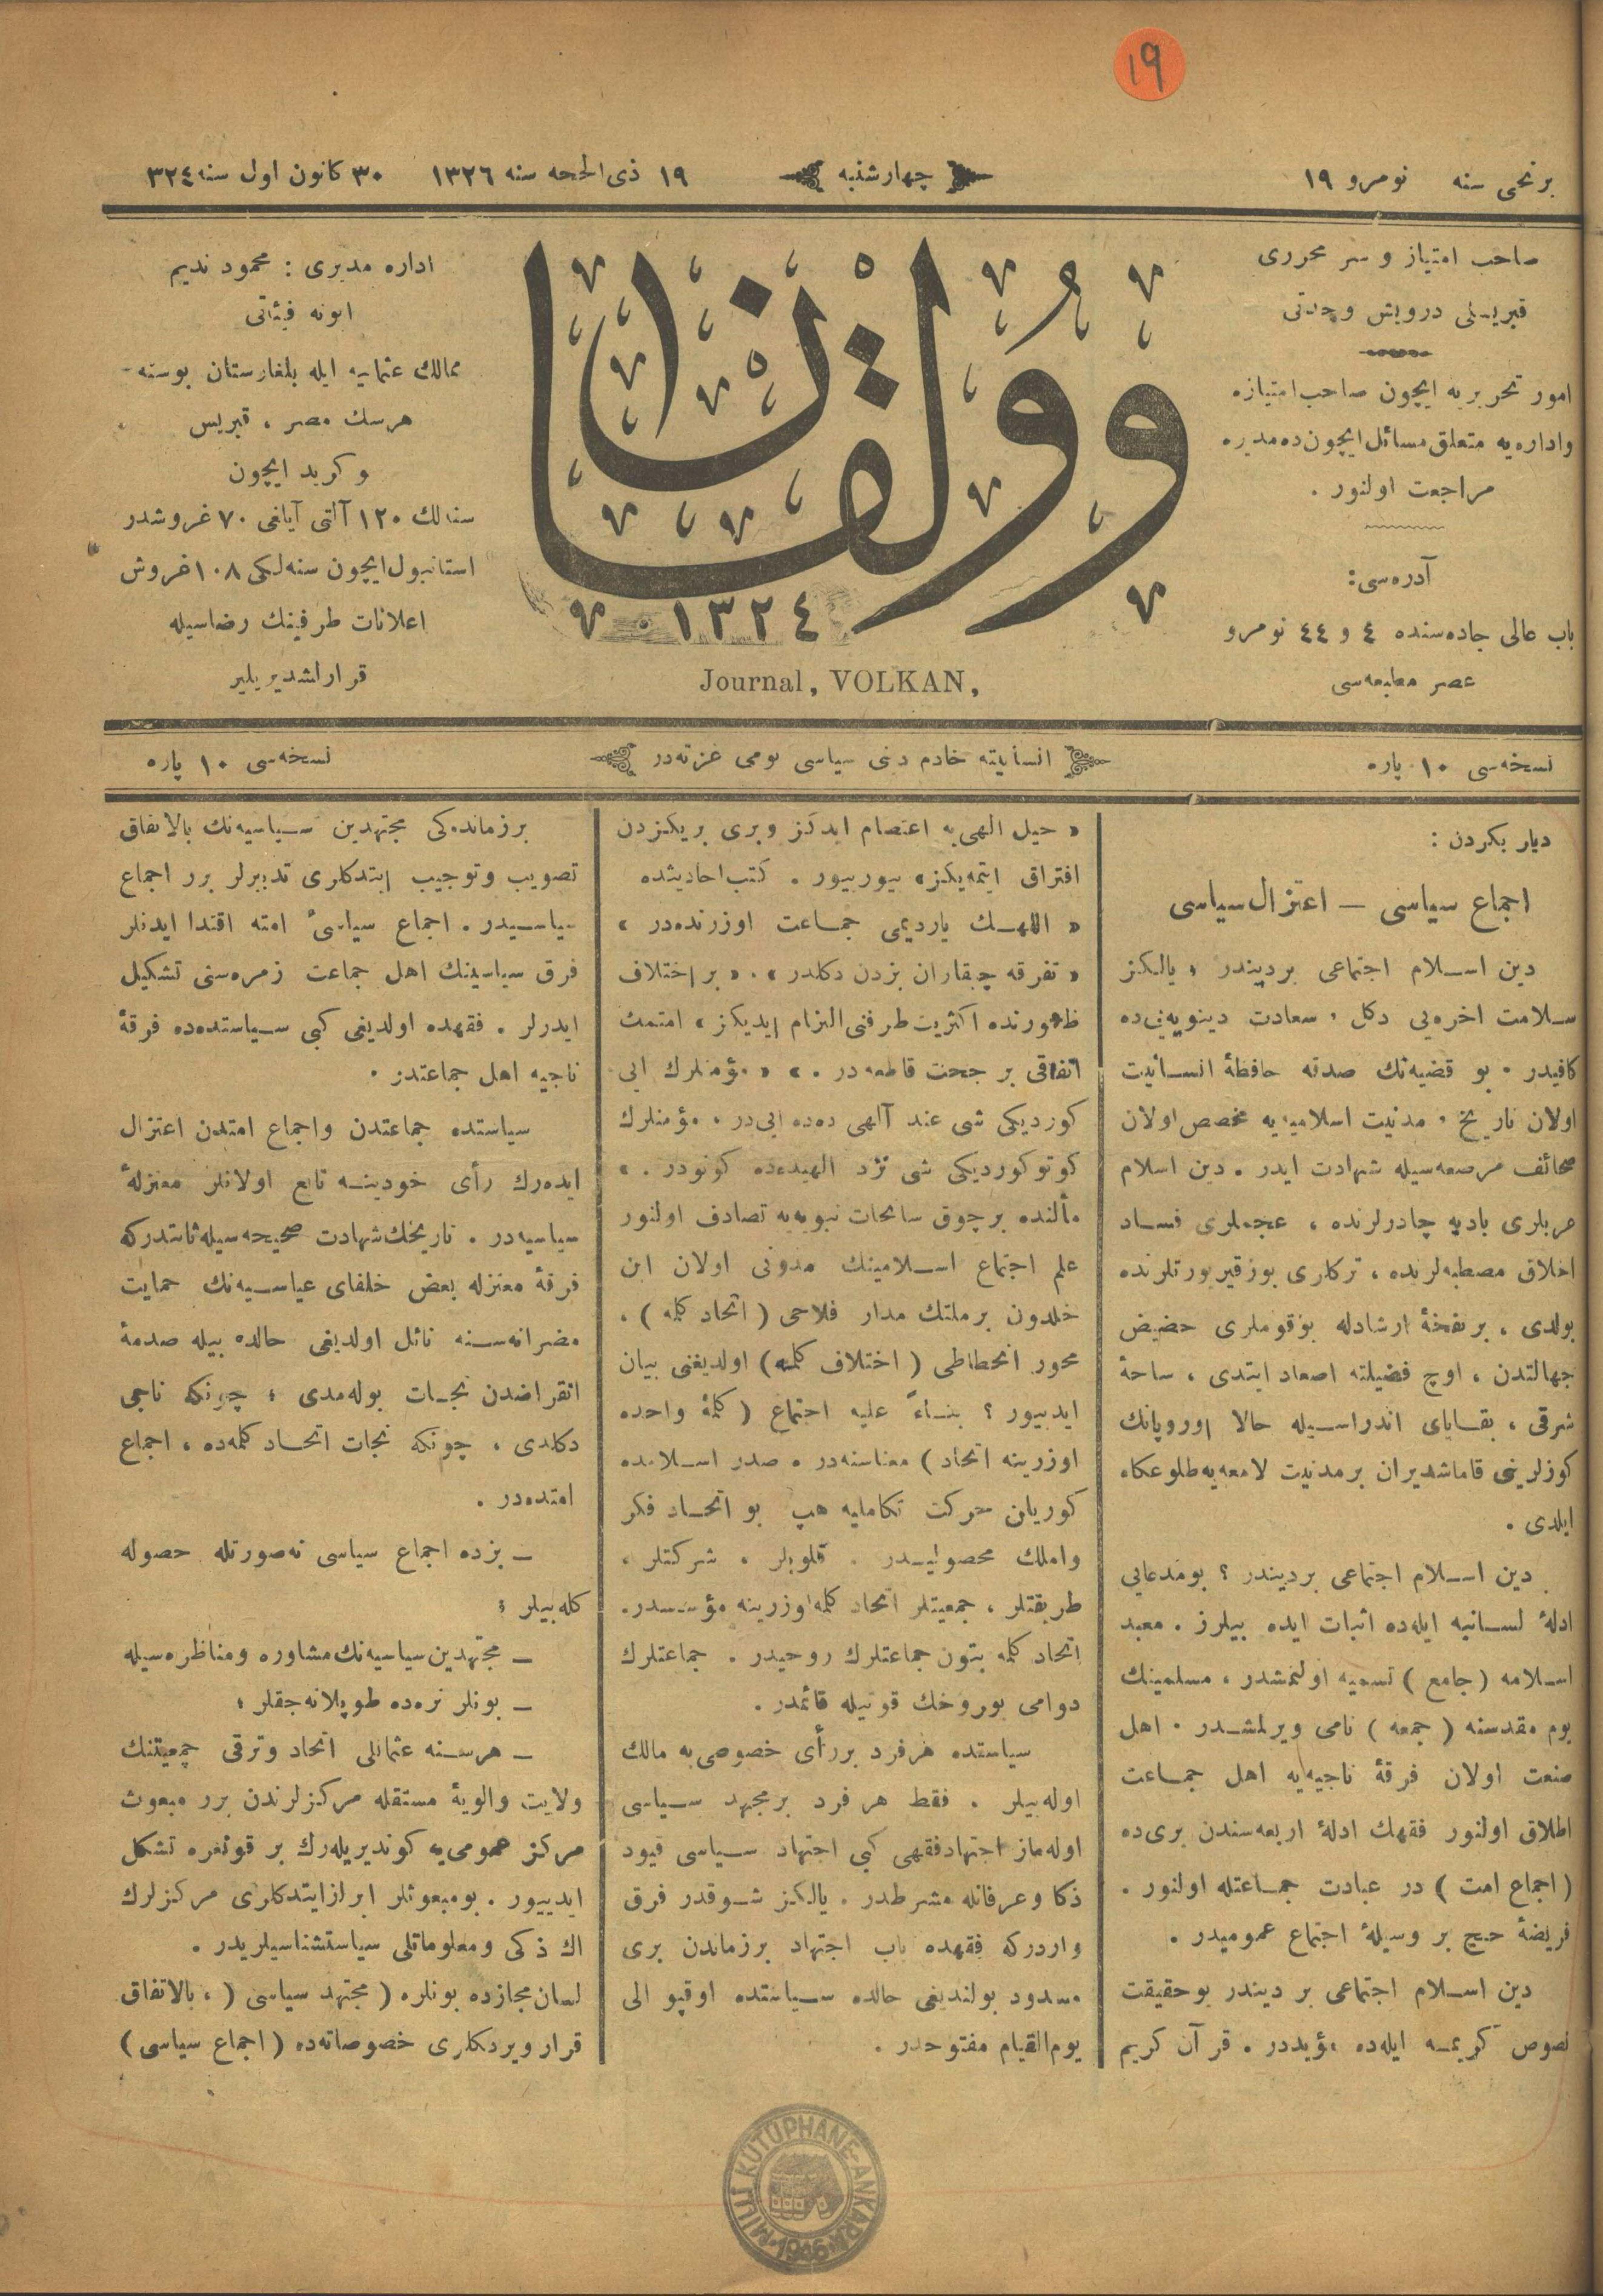 ١٩
برنجی سنه نومرو ١٩
چهارشنبه
١٩ ذی الحجه سنه ١٣٢٦
٣٠ كانون اول سنه ٣٢٤
صاحب امتیاز و سر محرری
قبریسلی درویش وحدتی
امور تحریریه ایچون صاحب امتیازه
واداره‌یه متعلق مسائل ایچون ده مدیره
مراجعت اولنور .
آدره‌سی:
باب عالی جاده‌سنده ٤ و ٤٤ نومرو
عصر مطبعه‌سی
وولقان
١٣٢٤
Journal, VOLKAN,
اداره مدیری : محمود ندیم
ابونه فیئاتی
ممالك عثمانیه ایله بلغارستان بوسنه-
هرسك مصر ، قبریس
و كرید ایچون
سنه‌لك ١٢٠ آلتی آیلغی ٧٠ غروشدر
استانبول ایچون سنه‌لكی ١٠٨ غروش
اعلانات طرفینك رضاسیله
قرارلشدیریلیر
نسخه‌سی ١٠ پاره
انسانیته خادم دینی سیاسی یومی غزته‌در
نسخه‌سی ١٠ پاره
دیار بكردن :
اجماع سیاسی — اعتزال سیاسی
دین اسلام اجتماعی بر دیندر ، یالكز
سلامت اخرویی دكل ، سعادت دینویه‌یی ده
كافیدر . بو قضیه‌نك صدقنه حافظۀ انسانیت
اولان تاریخ ، مدنیت اسلامیه‌یه مخصص اولان
صحائف مرصعه‌سیله شهادت ایدر . دین اسلام
عربلری بادیه چادرلرنده ، عجملری فساد
اخلاق مصطبه‌لرنده ، تركلری بوزقیر یورتلرنده
بولدی ، بر نفخۀ ارشادله بو قوملری حضیض
جهالتدن ، اوج فضیلته اصعاد ایتدی ، ساحۀ
شرقی ، بقایای اندراسیله حالا اوروپانك
كوزلرینی قاماشدیران بر مدنیت لامعه‌یه طلوعكاه
ایلدی .
دین اسلام اجتماعی بر دیندر ؟ بو مدعایی
ادلۀ لسانیه ایله‌ده اثبات ایده بیلرز . معبد
اسلامه (جامع) تسمیه اولنمشدر ، مسلمینك
یوم مقدسنه (جمعه) نامی ویرلمشدر . اهل
صنعت اولان فرقۀ ناجیه‌یه اهل جماعت
اطلاق اولنور فقهك ادلۀ اربعه‌سندن بری ده
(اجماع امت) در عبادت جماعتله اولنور .
فریضۀ حج بر وسیلۀ اجتماع عمومیدر .
دین اسلام اجتماعی بر دیندر بو حقیقت
نصوص كریمه ایله‌ده مؤیددر . قرآن كریم
« حبل الهی‌یه اعتصام ایدكز وبری بریكزدن
افتراق ایتمه‌یكز» بیوریور . كتب احادیثده
« اللهك یاردیمی جماعت اوزرنده‌در »
« تفرقه چیقاران بزدن دكلدر » . « بر اختلاف
ظهورنده اكثریت طرفنی التزام ایدیكز » امتمك
اتفاقی بر حجت قاطعه‌در . » « مؤمنلرك ایی
كوردیكی شی عند آلهی ده‌ده ایی‌در ، مؤمنلرك
كوتو كوردیكی شی نزد الهیده‌ده كوتودر . »
مألنده بر چوق سانحات نبویه‌یه تصادف اولنور
علم اجتماع اسلامینك مدونی اولان ابن
خلدون بر ملتك مدار فلاحی (اتحاد كلمه) ،
محور انحطاطی (اختلاف كلمه) اولدیغنی بیان
ایدییور ؟ بناءً علیه اجتماع (كلمۀ واحده
اوزرینه اتحاد) معناسنه‌در . صدر اسلامده
كوریلن حركت تكاملیه هپ بو اتحاد فكر
واملك محصولیدر . قلوبلر ، شركتلر ،
طریقتلر ، جمعیتلر اتحاد كلمه اوزرینه مؤسسدر.
اتحاد كلمه بتون جماعتلرك روحیدر . جماعتلرك
دوامی بو روحك قوتیله قائمدر .
سیاستده هر فرد بر رأی خصوصی‌یه مالك
اوله‌بیلر . فقط هر فرد بر مجتهد سیاسی
اوله‌ماز اجتهاد فقهی كبی اجتهاد سیاسی قیود
ذكا وعرفانله مشرطدر . یالكز شو قدر فرق
واردركه فقهده باب اجتهاد بر زماندن بری
مسدود بولندیغی حالده سیاستده او قپو الی
یوم القیام مفتوحدر .
بر زمانده‌كی مجتهدین سیاسیه‌نك بالاتفاق
تصویب وتوجیب ایتدكلری تدبیرلر برر اجماع
سیاسیدر . اجماع سیاسیٔ امته اقتدا ایدنلر
فرق سیاسیه‌نك اهل جماعت زمره‌سنی تشكیل
ایدرلر . فقهده اولدیغی كبی سیاستده‌ده فرقۀ
ناجیه اهل جماعتدر .
سیاستده جماعتدن واجماع امتدن اعتزال
ایده‌رك رأی خودینه تابع اولانلر معتزلۀ
سیاسیه‌در . تاریخك شهادت صحیحه‌سیله ثابتدركه
فرقۀ معتزله بعض خلفای عباسیه‌نك حمایت
مضرانه‌سنه نائل اولدیغی حالده بیله صدمۀ
انقراضدن نجات بوله‌مدی ؛ چونكه ناجی
دكلدی ، چونكه نجات اتحاد كلمه‌ده ، اجماع
امتده‌در .
— بزده اجماع سیاسی نه صورتله حصوله
كله بیلر ؟
— مجتهدین سیاسیه‌نك مشاوره ومناظره‌سیله
— بونلر نره‌ده طوپلانه‌جقلر ؟
— هر سنه عثمانلی اتحاد وترقی جمعیتنك
ولایت والویۀ مستقله مركزلرندن برر مبعوث
مركز عمومی‌یه كوندیریله‌رك بر قونغره تشكل
ایدییور . بو مبعوثلر ابراز ایتدكلری مركزلرك
اك ذكی ومعلوماتلی سیاستشناسلریدر .
لسان مجازده بونلره (مجتهد سیاسی) ، بالاتفاق
قرار ویردكلری خصوصاته‌ده (اجماع سیاسی)
MİLLİ KÜTÜPHANE-ANKARA
1946